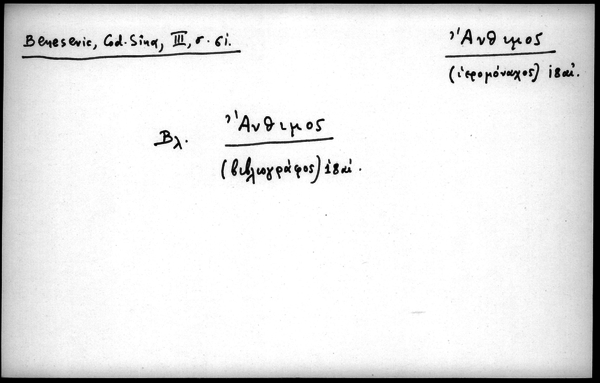 Benesevic, Cod. Sina, III, σ. 61.
Ἄνθιμος
(ἱερομόναχος) 18 αἰ.
Βλ. Ἄνθιμος
(βιβλιογράφος) 18 αἰ.